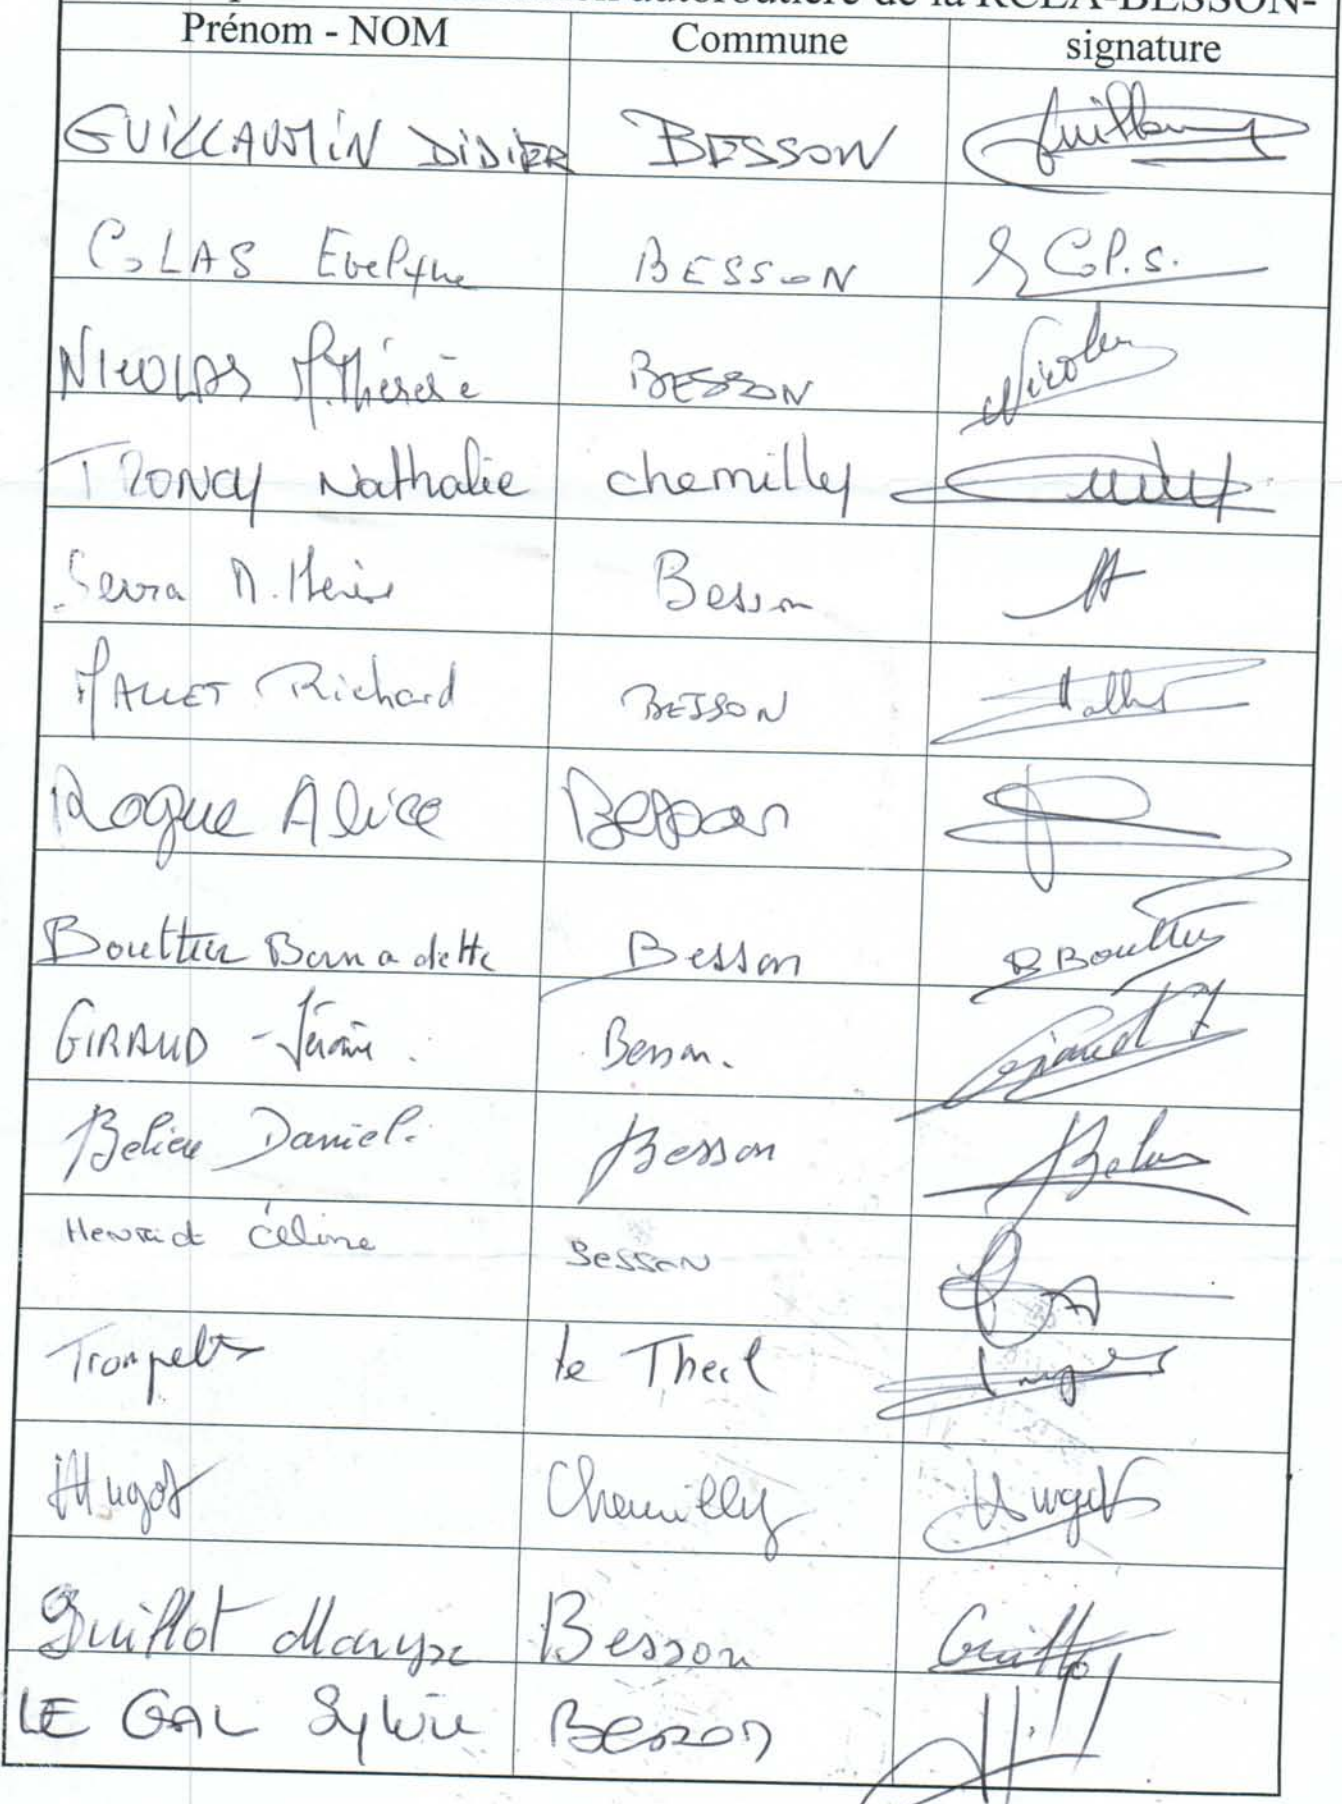 autoroutière de la RCEA-BESSON-
Prénom - NOM Commune signature
GUILLAUMIN DIDIER BESSON Guillaumin
COLAS Evelyne BESSON
NICOLAS M.Thérèse BESSON Nicolas
TRONCY Nathalie chemilly
Serra M. Besson
MALLET Richard BESSON
Rogue Alice Besson
Bouttier Bernadette Besson B Bouttier
GIRAUD - Jérôme. Besson.
Belien Daniel. Besson
Céline BESSON
le Theil
Hugot Chemilly Hugot
Guillot Maryse Besson Guillot
LE GAL Sylvie Besson